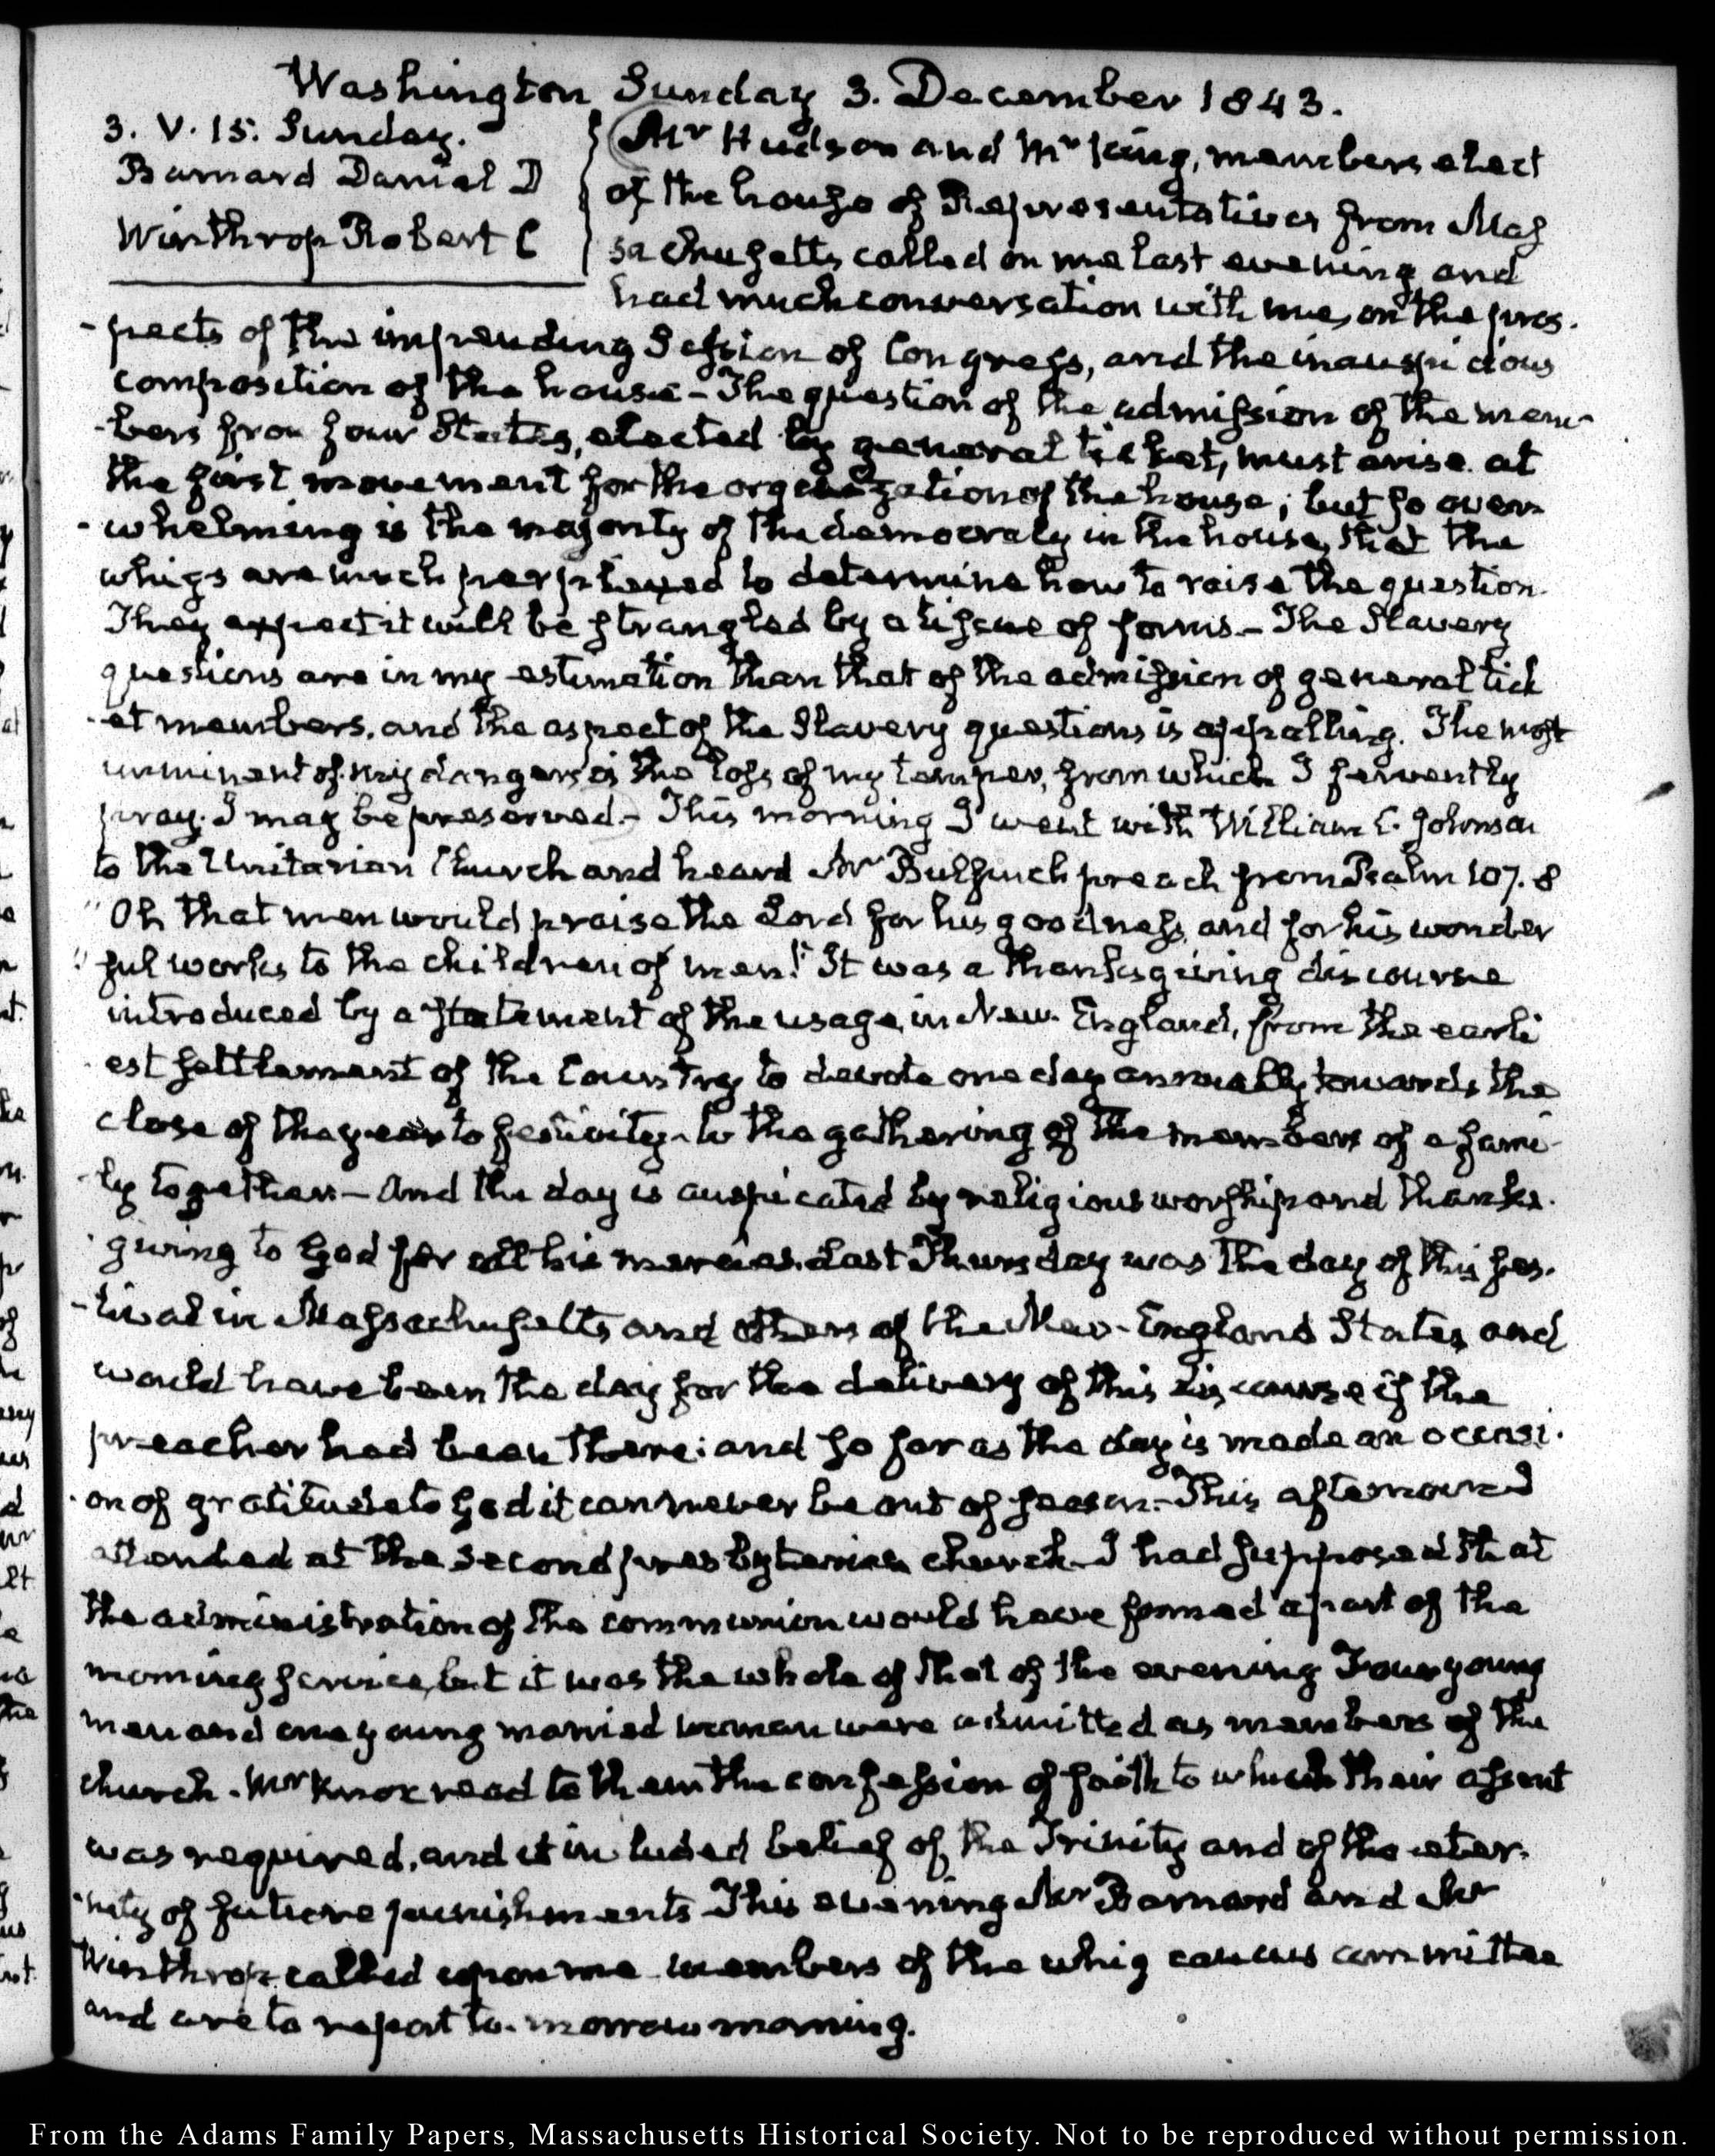 Washington Sunday 3. December 1843.
3. V. 15. Sunday.
Barnard Daniel D
Winthrop Robert C
Mr Hudson and Mr King, members elect
of the house of Representatives from Mas
sachusetts called on me last evening and
had much conversation with me, on the pros.
-pects of the impending Session of Congress, and the inauspicious
composition of the house - The question of the admission of the mem-
-bers from four States, elected by general ticket, must arise at
the first movement for the organization of the house; but so over-
-whelming is the majority of the democracy in the house, that the
whigs are much perplexed to determine how to raise the question.
They expect it will be strangled by a tissue of forms - The Slavery
questions are in my estimation than that of the admission of general tick
-et members, and the aspect of the Slavery questions is appalling. The most
imminent of my dangers is the loss of my temper, from which I fervently
pray I may be preserved. - This morning I went with William C. Johnson
to the Unitarian Church and heard Mr Bulfinch preach from Psalm 107. 8
"Oh that men would praise the Lord for his goodness, and for his wonder
"ful works to the children of men!" It was a thanksgiving discourse
introduced by a statement of the usage, in New England, from the earli
est settlement of the Country to devote one day annually towards the
close of the year to festivity - to the gathering of the members of a fami-
-ly together - And the day is auspicated by religious worship and thanks.
giving to God for all his mercies. Last Thursday was the day of this fes.
-tival in Massachusetts and others of the New-England States and
would have been the day for the delivery of this discourse if the
preacher had been there: and so far as the day is made an occasi.
-on of gratitude to God it can never be out of season. - This afternoon I
attended at the second presbyterian church. I had supposed that
the administration of the communion would have formed a part of the
morning service, but it was the whole of that of the evening Four young
men and one young married woman were admitted as members of the
church. Mr Knox read to them the confession of faith to which their assent
was required, and it included belief of the Trinity and of the eter.
-nity of future punishments This evening Mr Barnard and Mr
Winthrop called upon me members of the whig caucus committee
and are to report to-morrow morning.
From the Adams Family Papers, Massachusetts Historical Society. Not to be reproduced without permission.